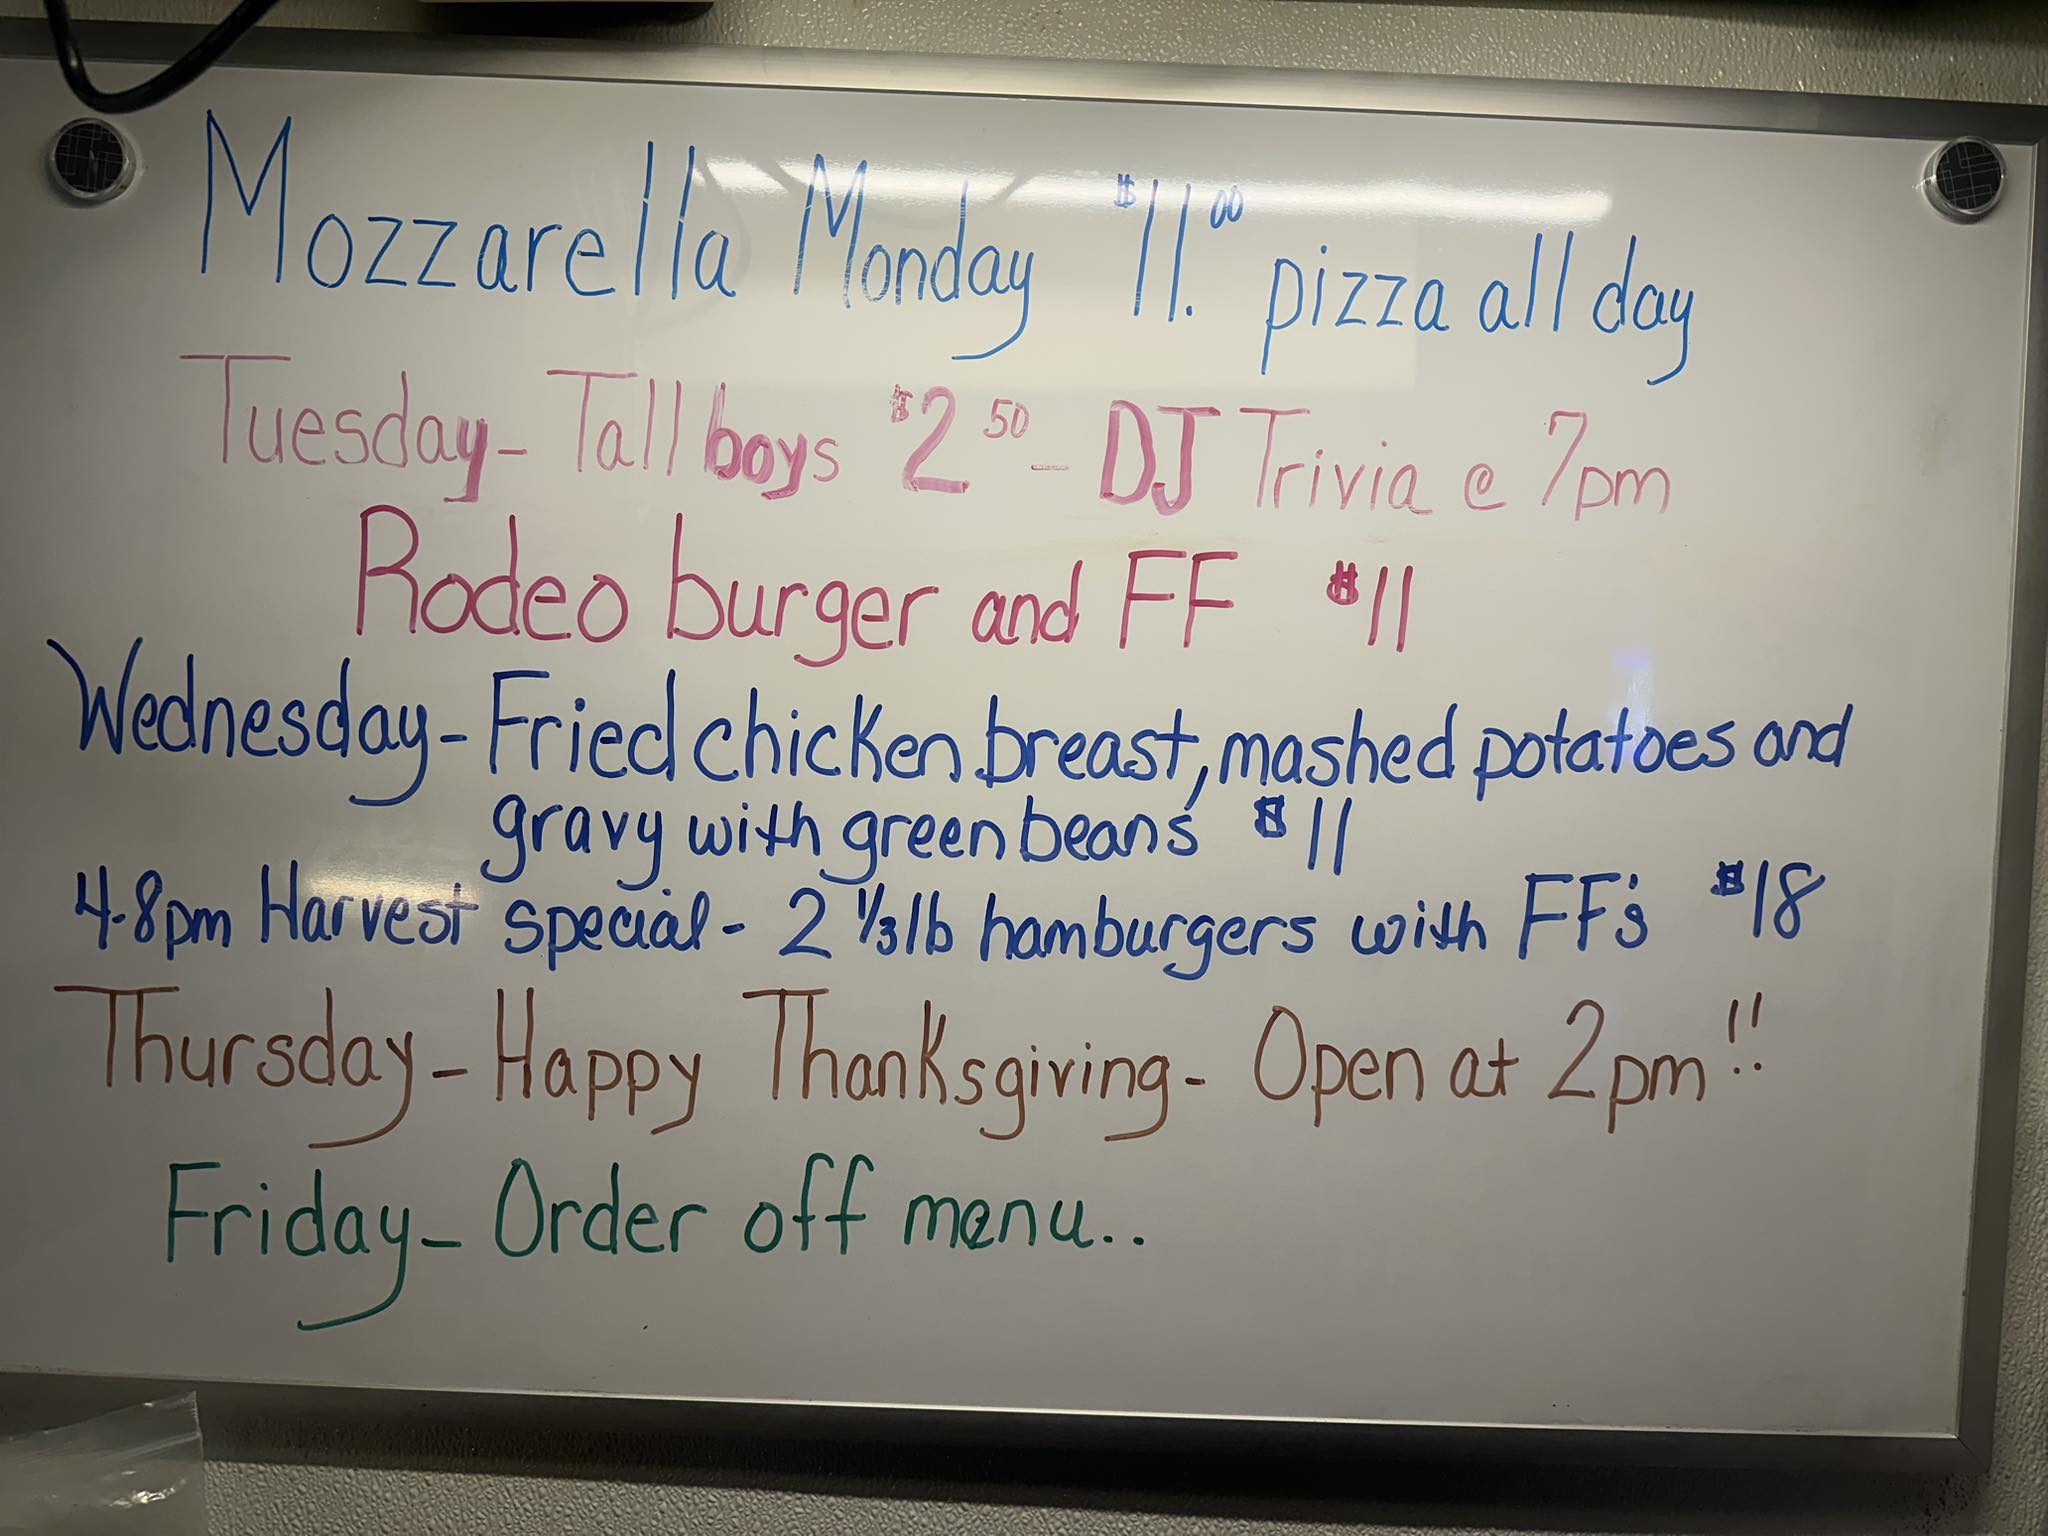 Mozzarella Monday $11.00 pizza all day
Tuesday - Tall boys $2 50 - DJ Trivia @ 7pm
Rodeo burger and FF $11
Wednesday - Fried chicken breast, mashed potatoes and
gravy with green beans $11
4-8pm Harvest special - 2 1/3 lb hamburgers with FF's $18
Thursday - Happy Thanksgiving - Open at 2pm!!
Friday - Order off menu..